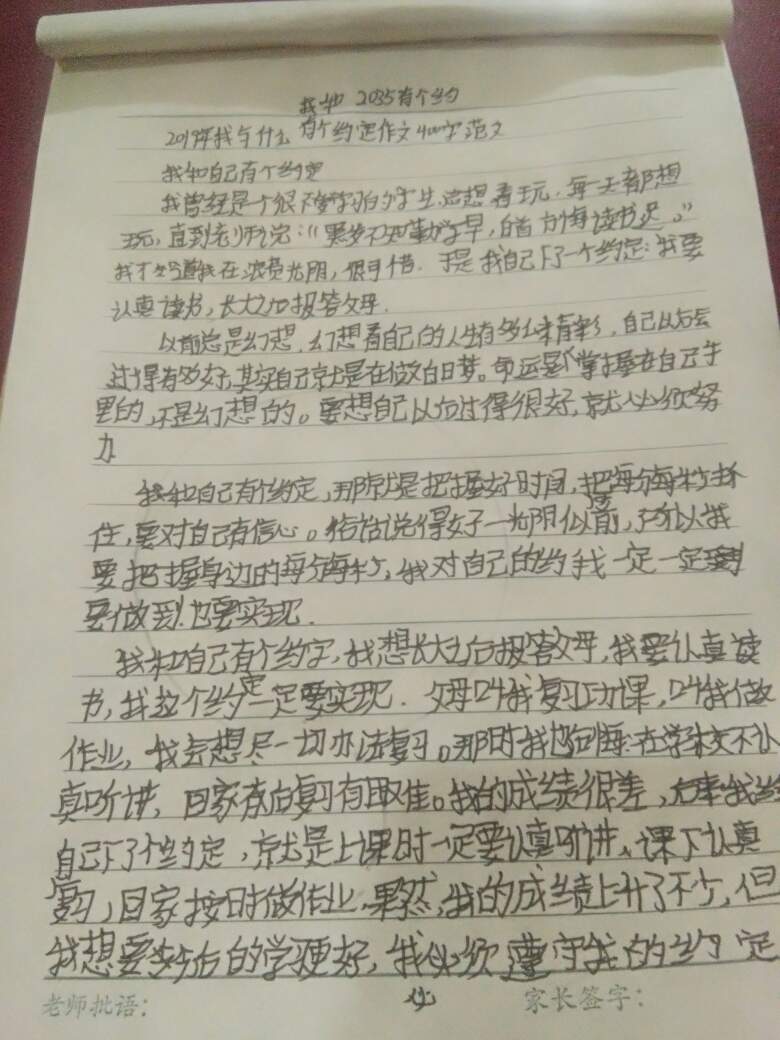 我和 2035有个约
2019年我与什么有个约定作文400字范文
我和自己有个约定
我曾经是个很不爱学习的学生,总想着玩,每天都想
玩,直到老师说:“黑发不知勤学早,白首方悔读书迟。”
我才知道我在浪费光阴,很可惜.于是我自己下了一个约定:我要
认真读书,长大以后报答父母.
以前总是幻想,幻想着自己的人生有多么精彩,自己以后会
过得有多好,其实自己就是在做白日梦。命运是掌握在自己手
里的,不是幻想的。要想自己以后过得很好,就必须努
力
我和自己有个约定,那就是把握好时间,把每分每秒抓
住,要对自己有信心。俗话说得好一光阴似箭,所以我
要把握身边的每分每秒,我对自己的约我一定一定要
要做到也要实现.
我和自己有个约字,我想长大以后报答父母,我要认真读
书,我这个约定一定要实现.父母叫我复习功课,叫我做
作业,我会想尽一切办法复习。那时我也后悔:在学校不认
真听讲,回家
我的成绩很差,
我给
自己下了个约定,就是上课时一定要认真听讲、课下认真
复习,回家按时做作业,果然,我的成绩上升了不少,但
我想要
的学更好,我必须遵守我的约定
老师批语:
家长签字: